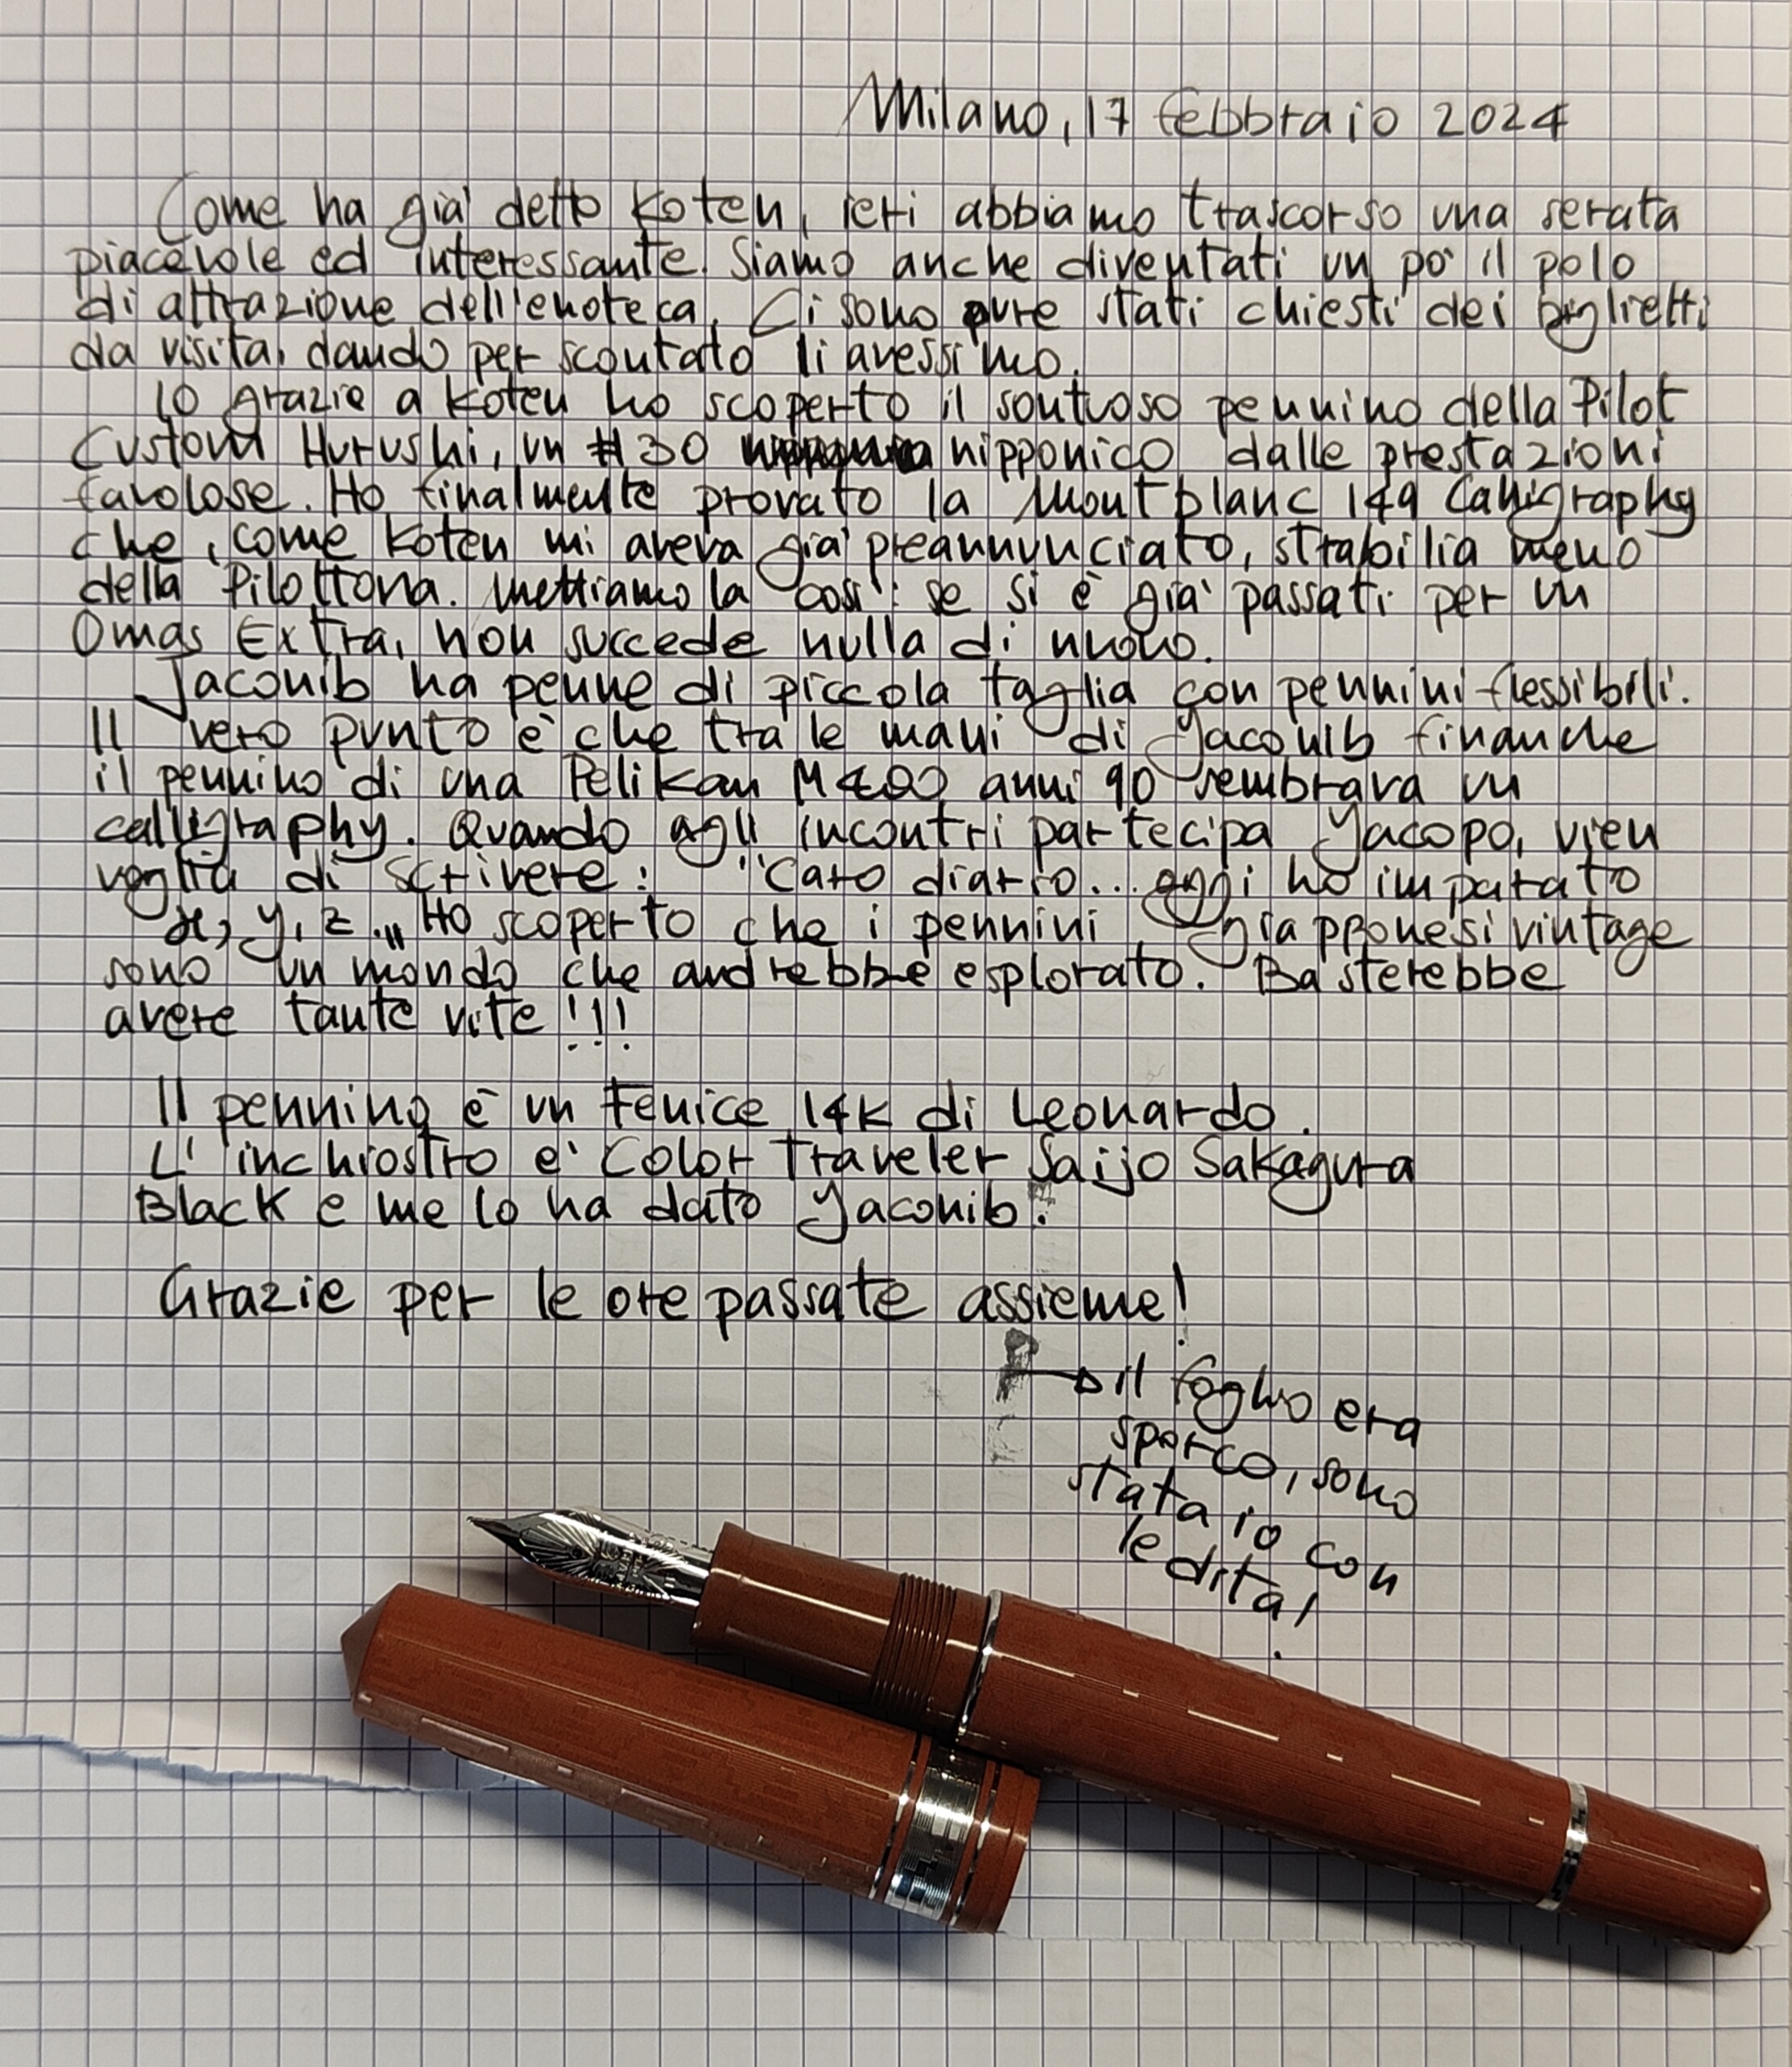 Milano, 17 febbraio 2024
Come ha già detto Koten, ieri abbiamo trascorso una serata
piacevole ed interessante. Siamo anche diventati un po' il polo
di attrazione dell'enoteca. Ci sono pure stati chiesti dei biglietti
da visita, dando per scontato li avessimo.
Io grazie a Koten ho scoperto il sontuoso pennino della Pilot
Custom Hurushi, un #30 nipponico dalle prestazioni
favolose. Ho finalmente provato la Montblanc 149 Calligraphy
che, come Koten mi aveva già preannunciato, strabilia meno
della Pilottona. Mettiamola così: se si è già passati per un
Omas Extra, non succede nulla di nuovo.
Jaconib ha penne di piccola taglia con pennini flessibili.
Il vero punto è che tra le mani di Jaconib finanche
il pennino di una Pelikan M400 anni 90 sembrava un
calligraphy. Quando agli incontri partecipa Jacopo, vien
voglia di scrivere: "Caro diario... oggi ho imparato
x, y, z..." Ho scoperto che i pennini giapponesi vintage
sono un mondo che andrebbe esplorato. Basterebbe
avere tante vite!!!
Il pennino è un Fenice 14K di Leonardo.
L'inchiostro e' Color Traveler Saijo Sakagura
Black e me lo ha dato Jaconib.
Grazie per le ore passate assieme!
il foglio era
sporco, sono
stata io con
le dita!